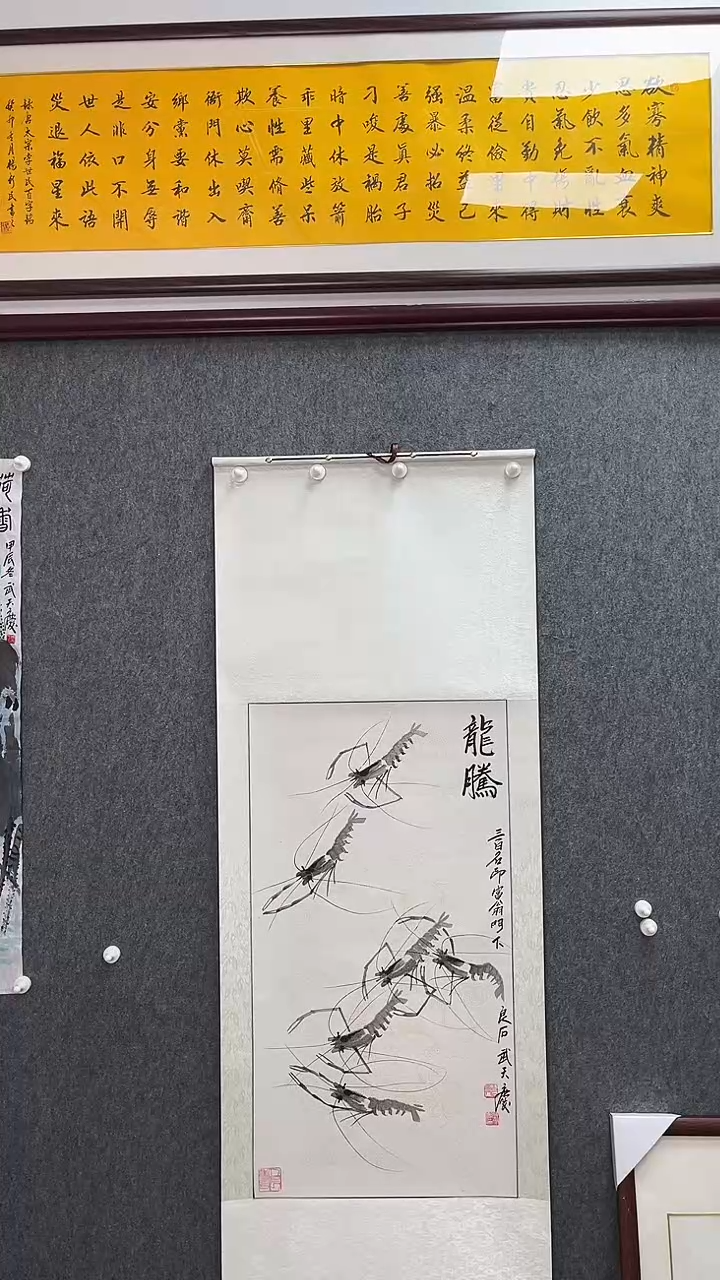 欲寡精神爽
思多氣血衰
少飲不亂性
忍氣免傷財
貴自勤中得
富從儉里來
温柔終益己
強暴必招災
善處真君子
刁唆是禍胎
暗中休放箭
乖里藏些呆
養性需修善
欺心莫喫齋
衙門休出入
鄉黨要和諧
安分身無辱
是非口不開
世人依此語
災退福星來
錄唐太宗李世民百字銘
癸卯
龍騰
三百石印富翁門下
良石武天慶
荷香
甲辰冬武天慶